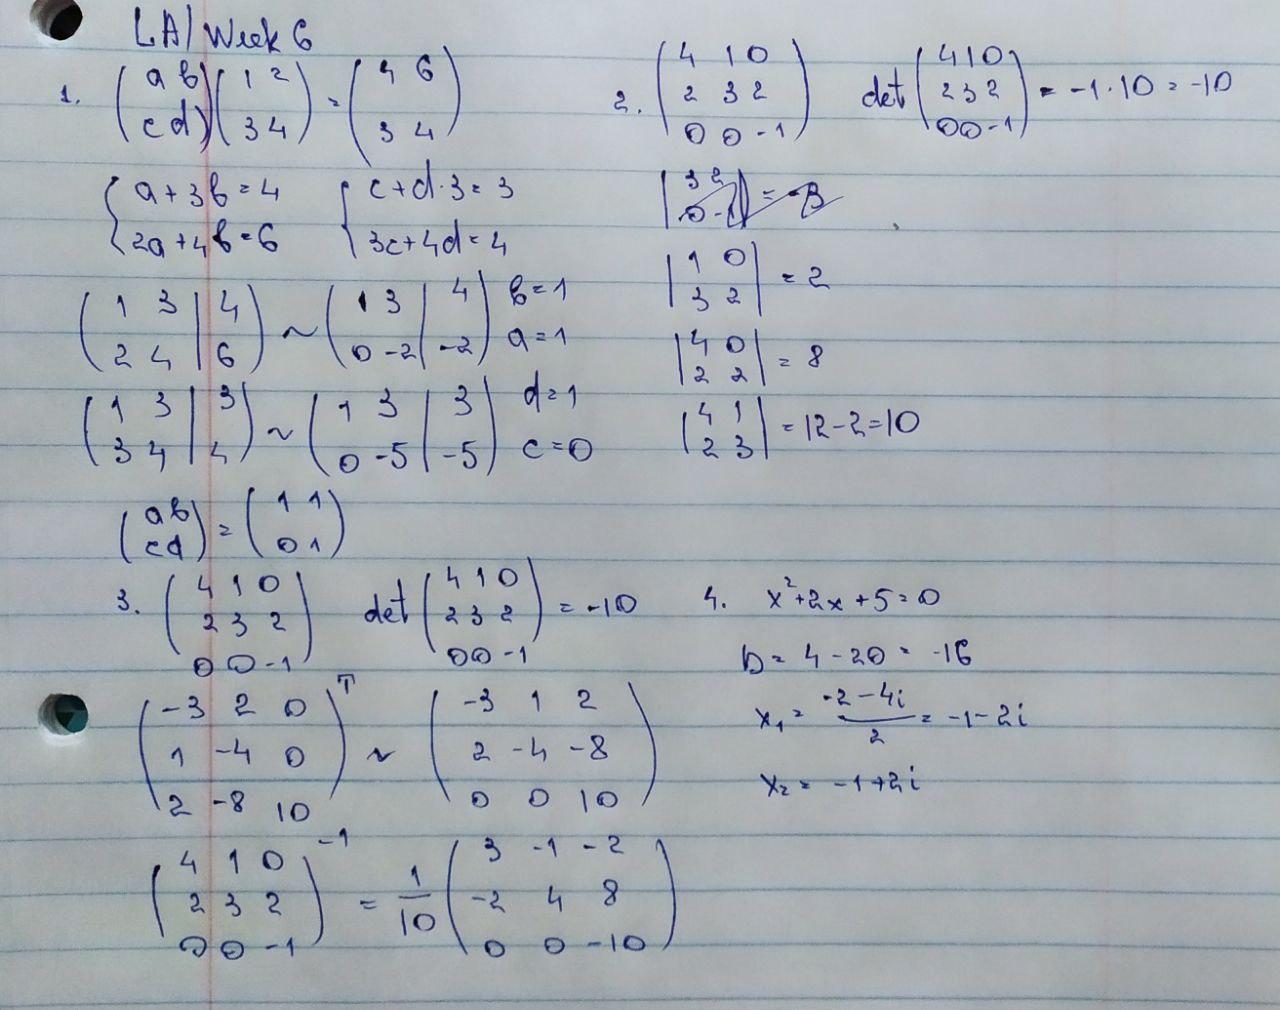 LA/Week 6
1. (a b; c d)(1 2; 3 4) = (4 6; 3 4)
{a+3b=4
{2a+4b=6
{c+d·3=3
{3c+4d=4
(1 3 | 4; 2 4 | 6) ~ (1 3 | 4; 0 -2 | -2) b=1 a=1
(1 3 | 3; 3 4 | 4) ~ (1 3 | 3; 0 -5 | -5) d=1 c=0
(a b; c d) = (1 1; 0 1)
2. (4 1 0; 2 3 2; 0 0 -1) det(4 1 0; 2 3 2; 0 0 -1) = -1·10 = -10
|3 2; 0 -1| = -3
|1 0; 3 2| = 2
|4 0; 2 2| = 8
|4 1; 2 3| = 12-2=10
3. (4 1 0; 2 3 2; 0 0 -1) det(4 1 0; 2 3 2; 0 0 -1) = -10
(-3 2 0; 1 -4 0; 2 -8 10)^T ~ (-3 1 2; 2 -4 -8; 0 0 10)
(4 1 0; 2 3 2; 0 0 -1)^-1 = 1/10 (3 -1 -2; -2 4 8; 0 0 -10)
4. x²+2x+5=0
D= 4-20= -16
x₁= (-2-4i)/2 = -1-2i
x₂= -1+2i